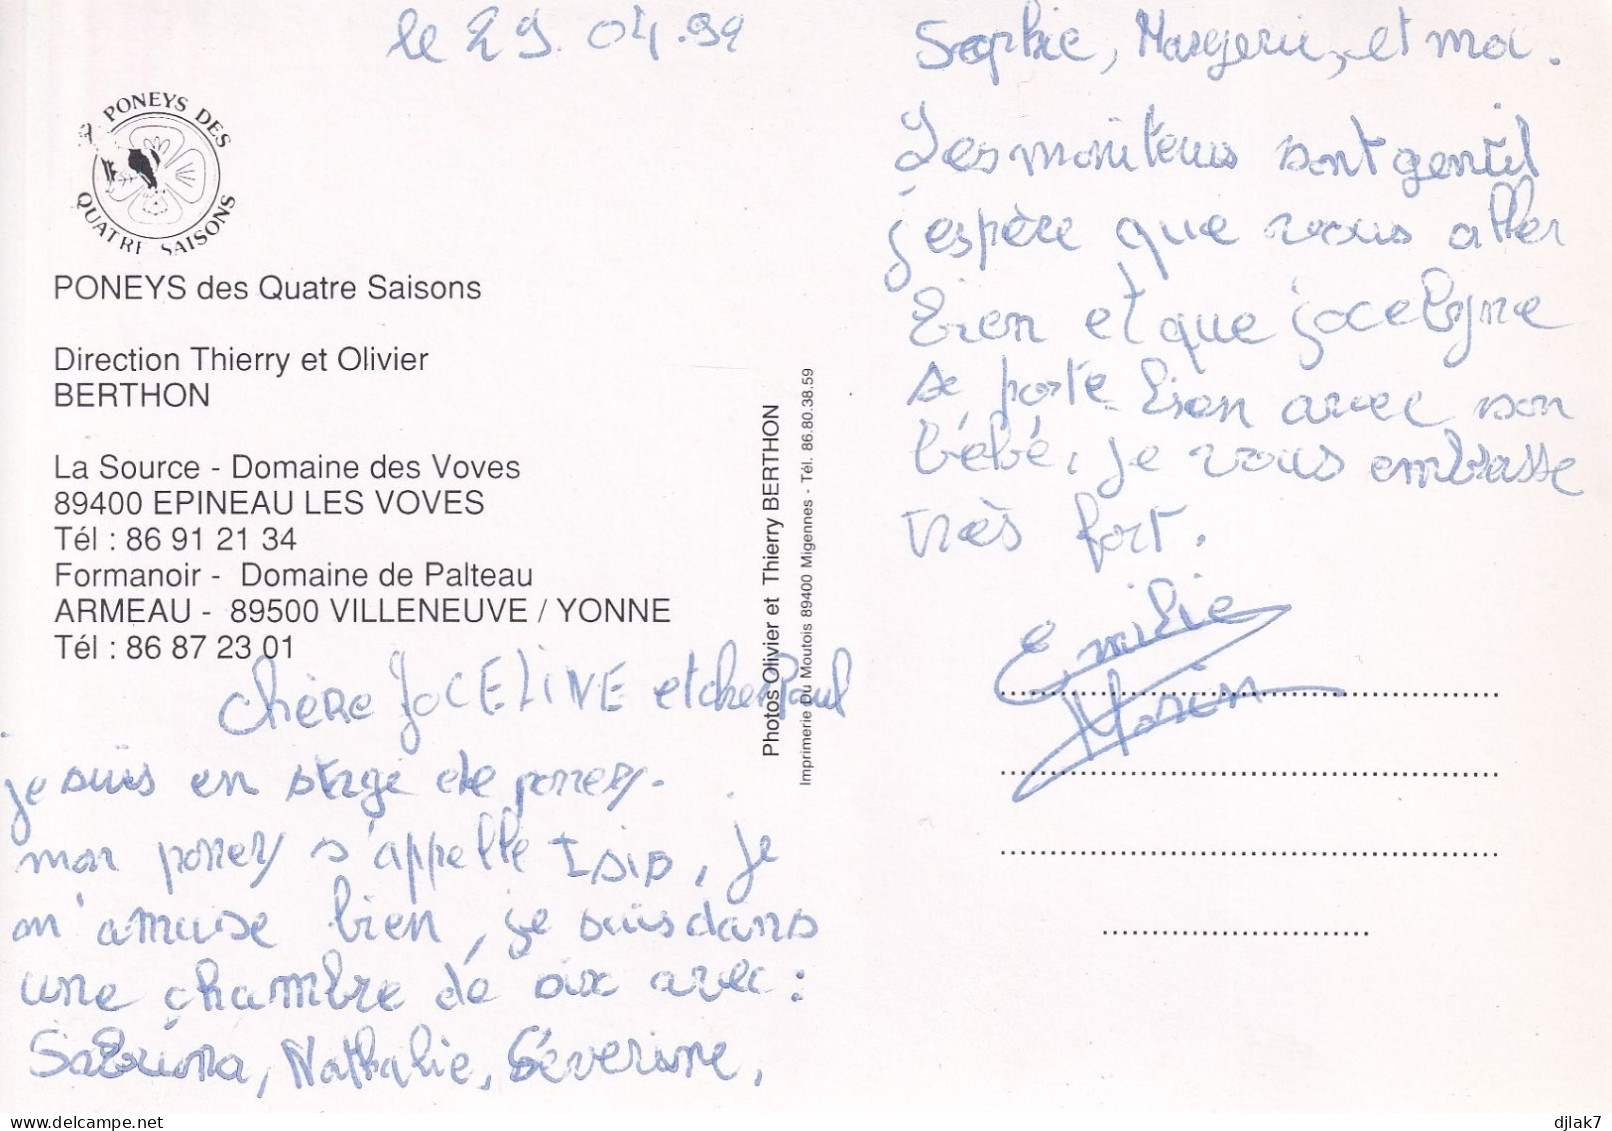 le 29.04.94
PONEYS DES
QUATRE SAISONS
PONEYS des Quatre Saisons
Direction Thierry et Olivier
BERTHON
La Source - Domaine des Voves
89400 EPINEAU LES VOVES
Tél : 86 91 21 34
Formanoir - Domaine de Palteau
ARMEAU - 89500 VILLENEUVE / YONNE
Tél : 86 87 23 01
chère JOCELINE et cher Paul
je suis en stage de poney.
mon poney s'appelle , je
m'amuse bien, je suis dans
une chambre de six avec :
Sabrina, Nathalie, Séverine,
Photos Olivier et Thierry BERTHON
Imprimerie Du Moutois 89400 Migennes - Tél. 86.80.38.59
Sophie, Margerie, et moi.
Les moniteurs sont gentil
j'espère que vous aller
bien et que jocelyne
se porte bien avec son
bébé, je vous embrasse
très fort.
Emilie
Morin
djlak7